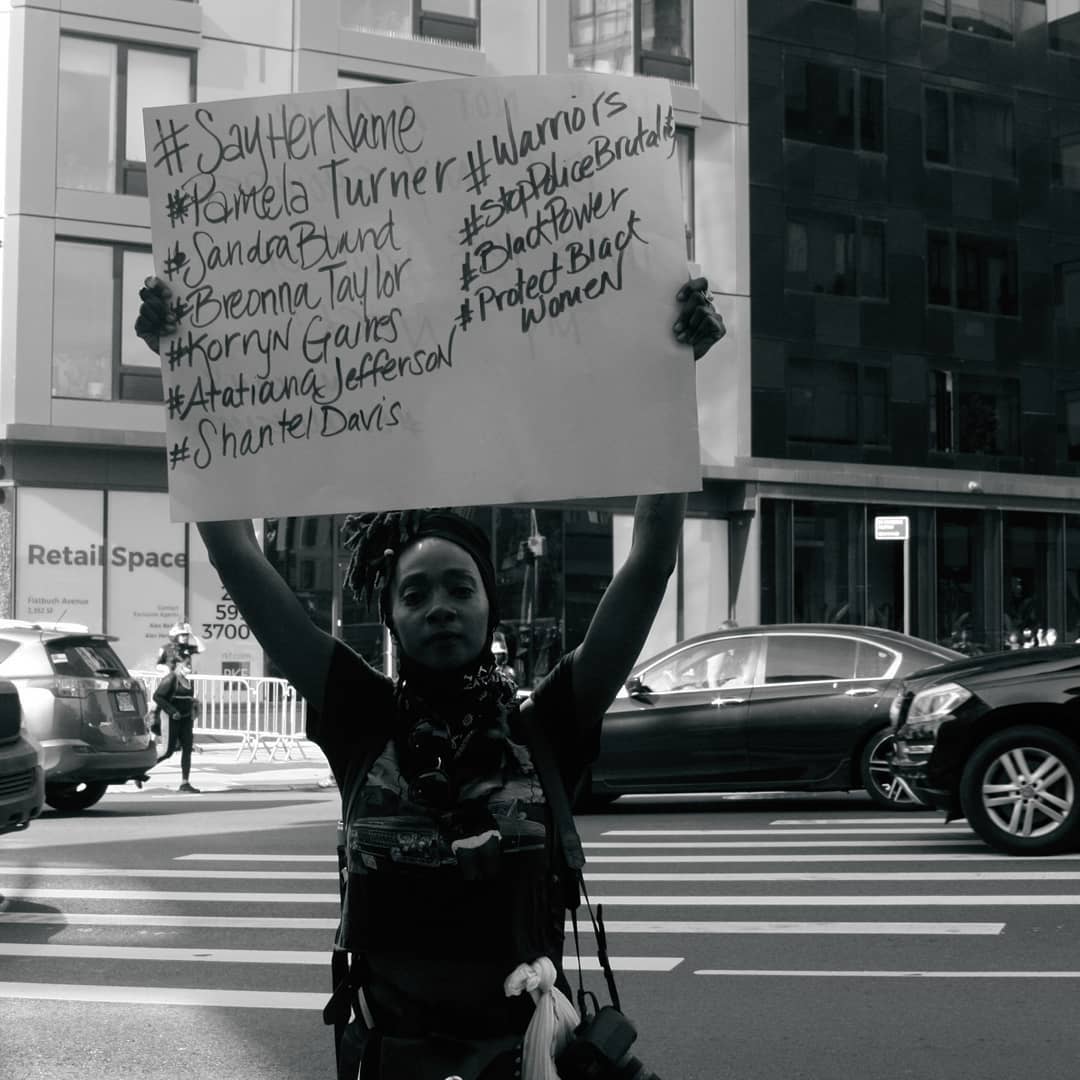 #SayHerName
#Pamela Turner
#SandraBland
#Breonna Taylor
#Korryn Gaines
#Atatiana Jefferson
#Shantel Davis
#Warriors
#StopPoliceBrutality
#BlackPower
#Protect Black
Women
Retail Space
Flatbush Avenue
Contact
Exclusive Agents
3700